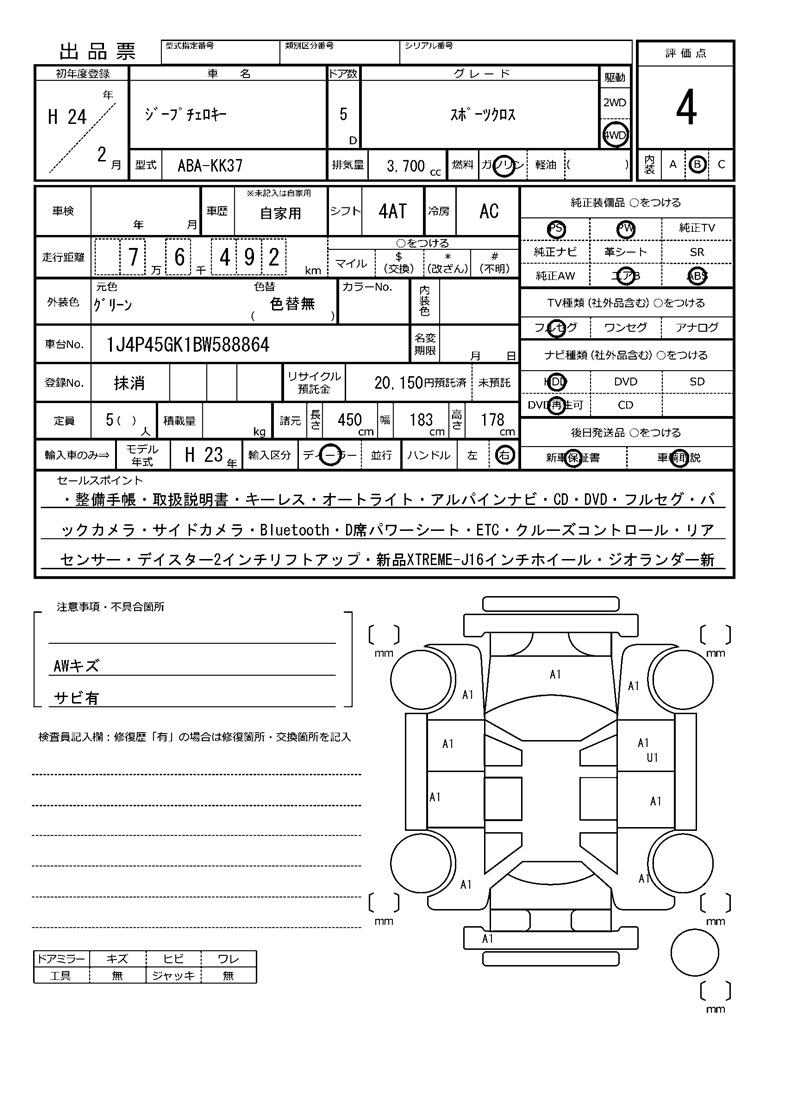 出品票 型式指定番号 類別区分番号 シリアル番号 評価点
初年度登録 車名 ドア数 グレード 駆動
H 24 年 2 月 ｼﾞｰﾌﾟﾁｪﾛｷｰ 5 D ｽﾎﾟｰﾂｸﾛｽ 2WD 4WD 4
型式 ABA-KK37 排気量 3,700 cc 燃料 ガソリン 軽油 ( ) 内装 A B C
車検 年 月 車歴 ※未記入は自家用 自家用 シフト 4AT 冷房 AC 純正装備品 ○をつける
PS PW 純正TV
走行距離 7 万 6 千 4 9 2 km ○をつける マイル $ (交換) * (改ざん) # (不明) 純正ナビ 革シート SR
純正AW エアB ABS
外装色 元色 ｸﾞﾘｰﾝ 色替 ( 色替無 ) カラーNo. 内装色 TV種類 (社外品含む) ○をつける
フルセグ ワンセグ アナログ
車台No. 1J4P45GK1BW588864 名変期限 月 日 ナビ種類 (社外品含む) ○をつける
登録No. 抹消 リサイクル預託金 20,150円預託済 未預託 HDD DVD SD
DVD再生可 CD
定員 5 ( ) 人 積載量 kg 諸元 長さ 450 cm 幅 183 cm 高さ 178 cm 後日発送品 ○をつける
輸入車のみ⇒ モデル年式 H 23 年 輸入区分 ディーラー 並行 ハンドル 左 右 新車保証書 車輌取説
セールスポイント
・整備手帳・取扱説明書・キーレス・オートライト・アルパインナビ・CD・DVD・フルセグ・バ
ックカメラ・サイドカメラ・Bluetooth・D席パワーシート・ETC・クルーズコントロール・リア
センサー・デイスター2インチリフトアップ・新品XTREME-J16インチホイール・ジオランダー新
注意事項・不具合箇所
AWキズ
サビ有
検査員記入欄：修復歴「有」の場合は修復箇所・交換箇所を記入
mm mm
A1
A1 A1
A1 A1
U1
A1 A1
A1 A1
mm mm
A1
mm
ドアミラー キズ ヒビ ワレ
工具 無 ジャッキ 無